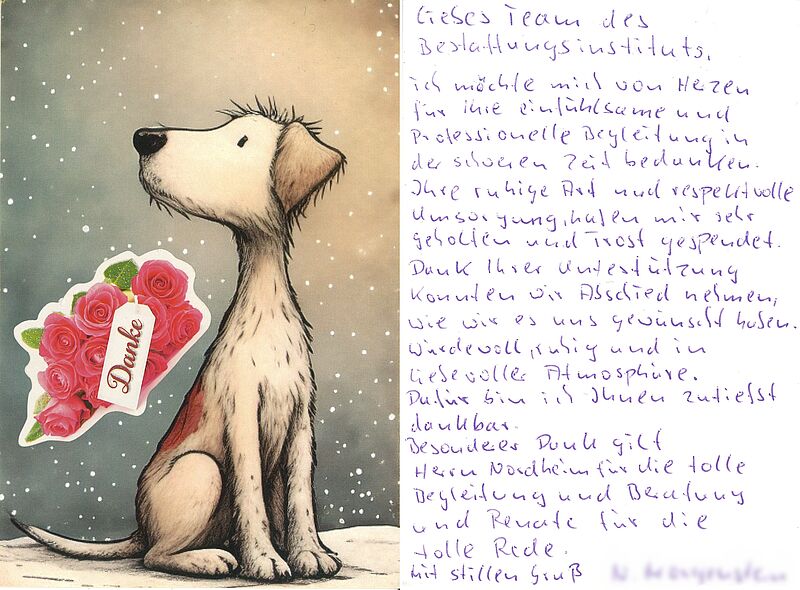 Danke
Liebes Team des
Bestattungsinstituts,
ich möchte mich von Herzen
für Ihre einfühlsame und
Professionelle Begleitung in
der schweren Zeit bedanken.
Ihre ruhige Art und respektvolle
Umsorgung, haben mir sehr
geholfen und Trost gespendet.
Dank Ihrer Unterstützung
konnten wir Abschied nehmen,
wie wir es uns gewünscht haben.
Würdevoll, ruhig und in
liebevoller Atmosphäre.
Dafür bin ich Ihnen zutiefst
dankbar.
Besonderer Dank gilt
Herrn Nordheim für die tolle
Begleitung und Beratung
und Renate für die
tolle Rede.
Mit stillen Gruß